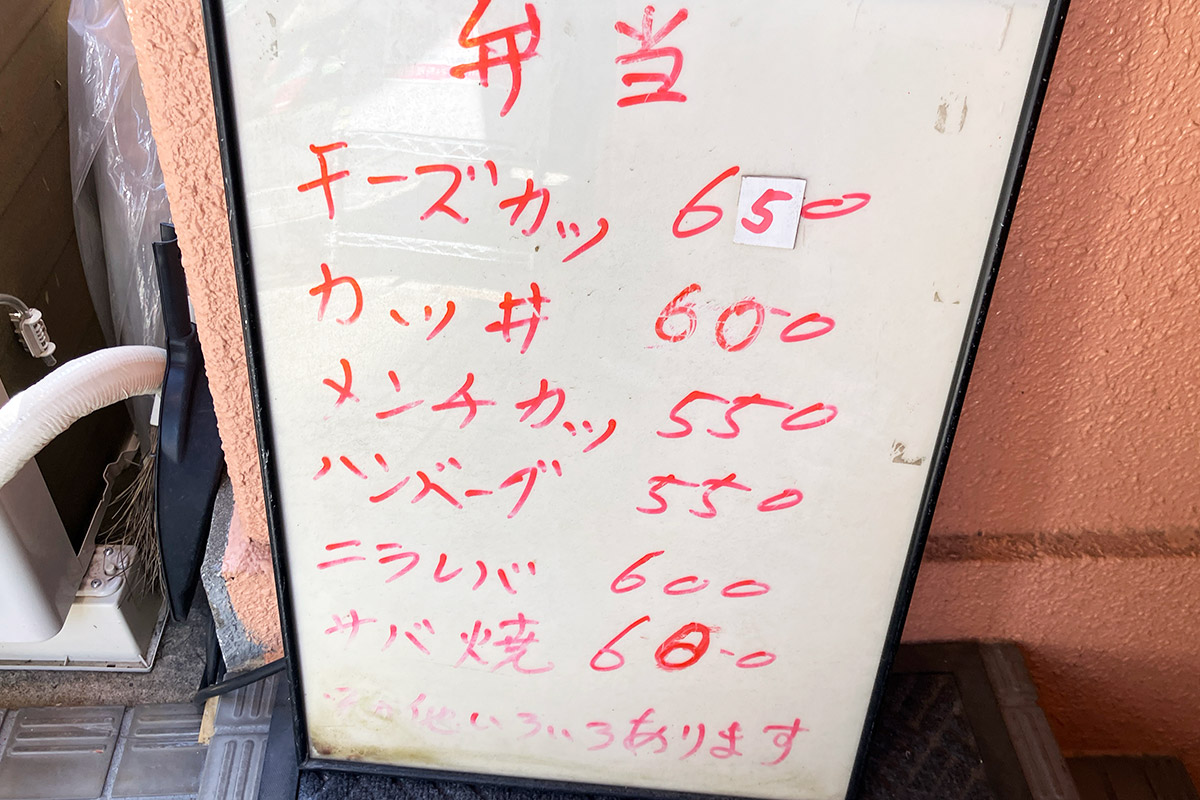 弁当
チーズカツ 650
カツ丼 600
メンチカツ 550
ハンバーグ 550
ニラレバ 600
サバ焼 600
その他いろいろあります